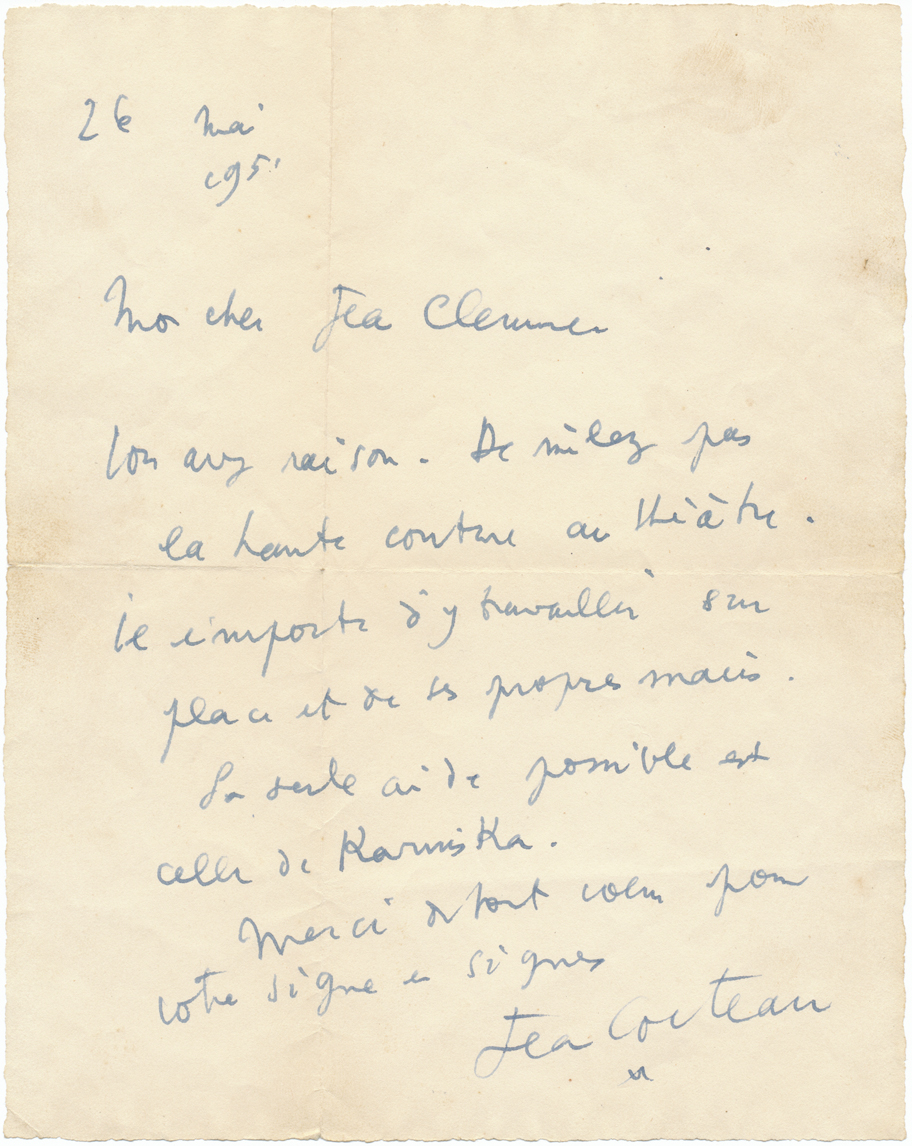 26 mai
1951
Mon cher Jean Clemmer
Vous avez raison. Ne mêlez pas
la haute couture au théâtre.
il importe d'y travailler sur
place et de ses propres mains.
La seule aide possible est
celle de Karinska.
Merci de tout coeur pour
votre signe et signes
Jean Cocteau